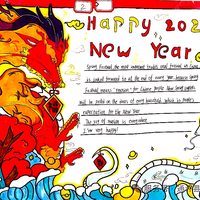 2
Happy 202
New Year
Spring Festival the most important traditional festival in
is looked forward to at the end of every year because Spring
Festival means "reunion" for Chinese people
will be on the doors of every household which is people's
expectation for the New Year
The joy of reunion is everywhere
I'm very happy!